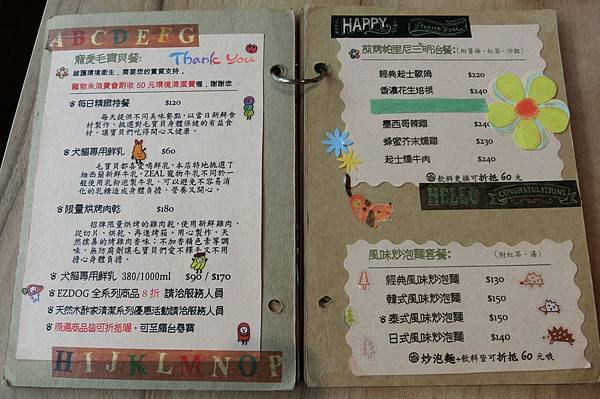 ABCDEFG
寵愛毛寶貝餐:
Thank You
維護環境衛生，需要您的實質支持，
寵物未消費會酌收 50 元環境清潔費喔，謝謝您
每日精緻特餐 $120
每天提供不同美味餐點，以當日新鮮食
材製作，挑選對毛寶貝身體保健的有益食
材，讓寶貝們吃得開心又健康。
犬貓專用鮮乳 $60
毛寶貝都喜愛喝鮮乳，本店特地挑選了
紐西蘭新鮮牛乳，ZEAL 寵物牛乳不同於一
般使用乳粉泡製牛乳，可以避免不容易消
化的乳糖造成身體負擔，營養又開心。
限量烘烤肉乾 $180
招牌限量烘烤的雞肉乾，使用新鮮雞肉，
從切片、烘乾、再進烤箱。用心製作，天
然撲鼻的烤雞肉香味；不加香精色素等調
味，無防腐劑讓毛寶貝們愛不釋手又不用
擔心身體負擔。
犬貓專用鮮乳 380/1000ml $90 / $170
EZDOG 全系列商品 8 折 請洽服務人員
天然木酢家清潔系列優惠活動請洽服務人員
原週商品皆可折抵喔，可至羅台尋寶
HIJKLMNOP
HAPPY
Thank You
煎烤帕里尼三明治餐:(附薯條、紅茶、沙拉)
經典起士歐姆 $220
香濃花生培根 $240
墨西哥辣雞 $240
蜂蜜芥末燻雞 $230
起士燻牛肉 $240
飲料更換可折抵 60 元
HELLO
CONGRATULATIONS
風味炒泡麵套餐: (附紅茶、湯)
經典風味炒泡麵 $130
韓式風味炒泡麵 $150
泰式風味炒泡麵 $150
日式風味炒泡麵 $140
炒泡麵+飲料皆可折抵 60 元哦